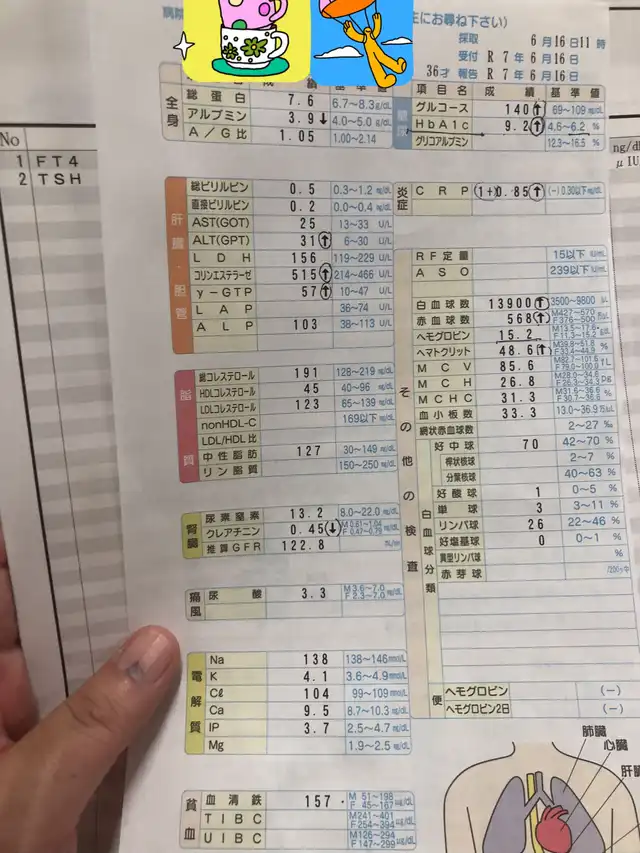 生にお尋ね下さい)
採取 6月16日11時
受付 R 7年 6月16日
36才 報告 R 7年 6月16日
No
1 FT4
2 TSH
全身
総蛋白 7.6 6.7~8.3g/dL
アルブミン 3.9↓ 4.0~5.0g/dL
A/G比 1.05 1.00~2.14
肝臓・胆管
総ビリルビン 0.5 0.3~1.2 mg/dL
直接ビリルビン 0.2 0.0~0.4 mg/dL
AST(GOT) 25 13~33 U/L
ALT(GPT) 31↑ 6~30 U/L
LDH 156 119~229 U/L
コリンエステラーゼ 515↑ 214~466 U/L
γ-GTP 57↑ 10~47 U/L
LAP 36~74 U/L
ALP 103 38~113 U/L
脂質
総コレステロール 191 128~219 mg/dL
HDLコレステロール 45 40~96 mg/dL
LDLコレステロール 123 65~139 mg/dL
nonHDL-C 169以下 mg/dL
LDL/HDL比
中性脂肪 127 30~149 mg/dL
リン脂質 150~250 mg/dL
腎臓
尿素窒素 13.2 8.0~22.0 mg/dL
クレアチニン 0.45↓ M 0.61~1.04 F 0.47~0.79 mg/dL
推算GFR 122.8
痛風
尿酸 3.3 M 3.6~7.0 F 2.3~7.0 mg/dL
電解質
Na 138 138~146 mmol/L
K 4.1 3.6~4.9 mmol/L
Cℓ 104 99~109 mmol/L
Ca 9.5 8.7~10.3 mg/dL
IP 3.7 2.5~4.7 mg/dL
Mg 1.9~2.5 mg/dL
貧血
血清鉄 157 M 51~198 F 45~167 μg/dL
TIBC M241~401 F254~394 μg/dL
UIBC M126~294 F147~299 μg/dL
項目名 成績 基準値
グルコース 140↑ 69~109 mg/dL
HbA1c 9.2↑ 4.6~6.2 %
グリコアルブミン 12.3~16.5 %
炎症
CRP (1+)0.85↑ (-) 0.30以下 mg/dL
その他の検査
RF定量 15以下 IU/mL
ASO 239以下 IU/mL
白血球数 13900↑ 3500~9800 /μ
赤血球数 568↑ M427~570 F376~500
ヘモグロビン 15.2
ヘマトクリット 48.6↑ M39.8~51.8 F33.4~44.9 %
MCV 85.6
MCH 26.8
MCHC 31.3
血小板数 33.3 13.0~36.9
網状赤血球数 2~27 ‰
白血球分類
好中球 70 42~70 %
桿状核球 2~7 %
分葉核球 40~63 %
好酸球 1 0~5 %
単球 3 3~11 %
リンパ球 26 22~46 %
好塩基球 0 0~1 %
異型リンパ球 %
赤芽球 /200ヶ中
便
ヘモグロビン (-)
ヘモグロビン2日 (-)
肺臓
心臓
肝臓
ng/dL
μIU